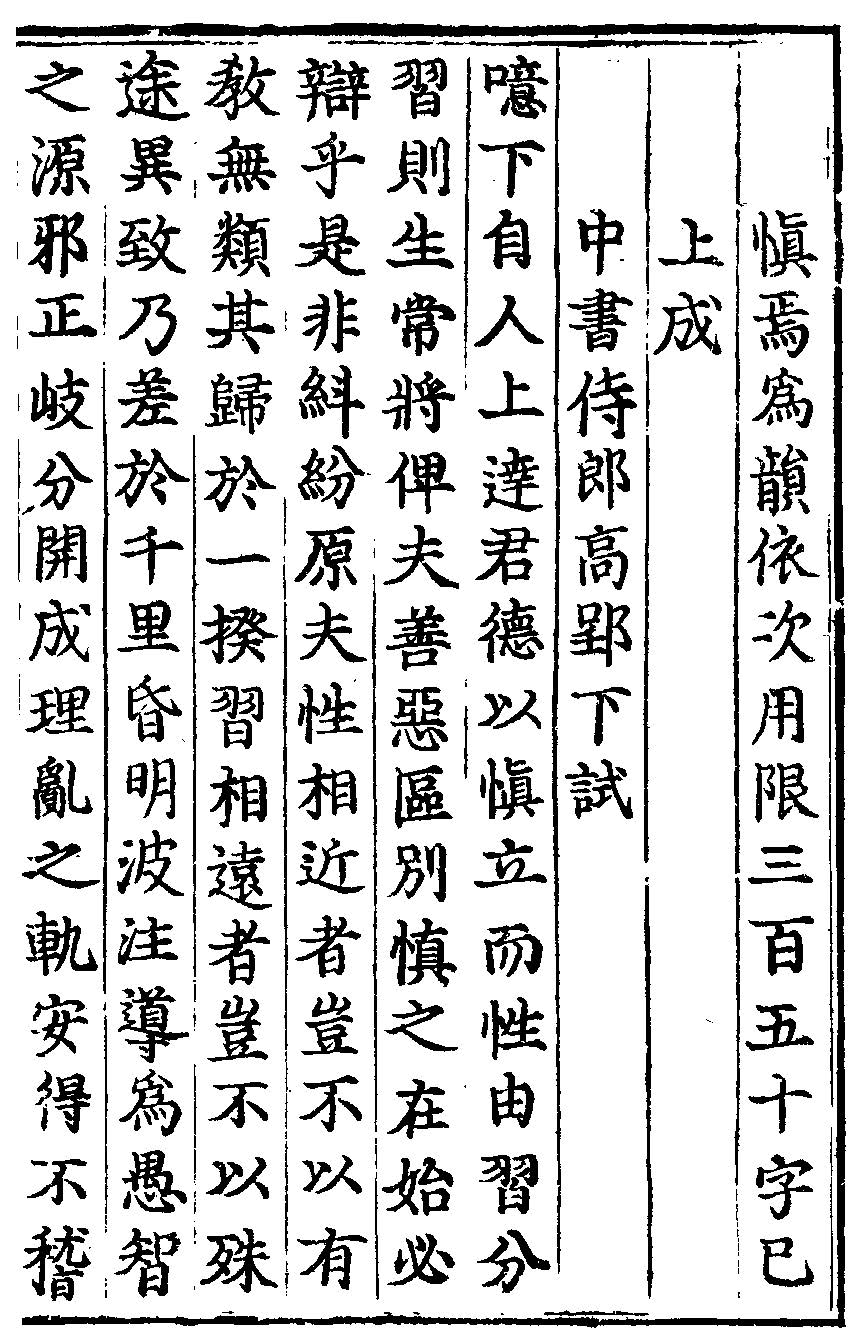 慎焉爲韻依次用限三百五十字已
上成
中書侍郎高郢下試
噫下自人上達君德以慎立而性由習分
習則生常將俾夫善惡區別慎之在始必
辯乎是非糾紛原夫性相近者豈不以有
教無類其歸於一揆習相遠者豈不以殊
途異致乃差於千里昏明波注導爲愚智
之源邪正岐分開成理亂之軌安得不稽